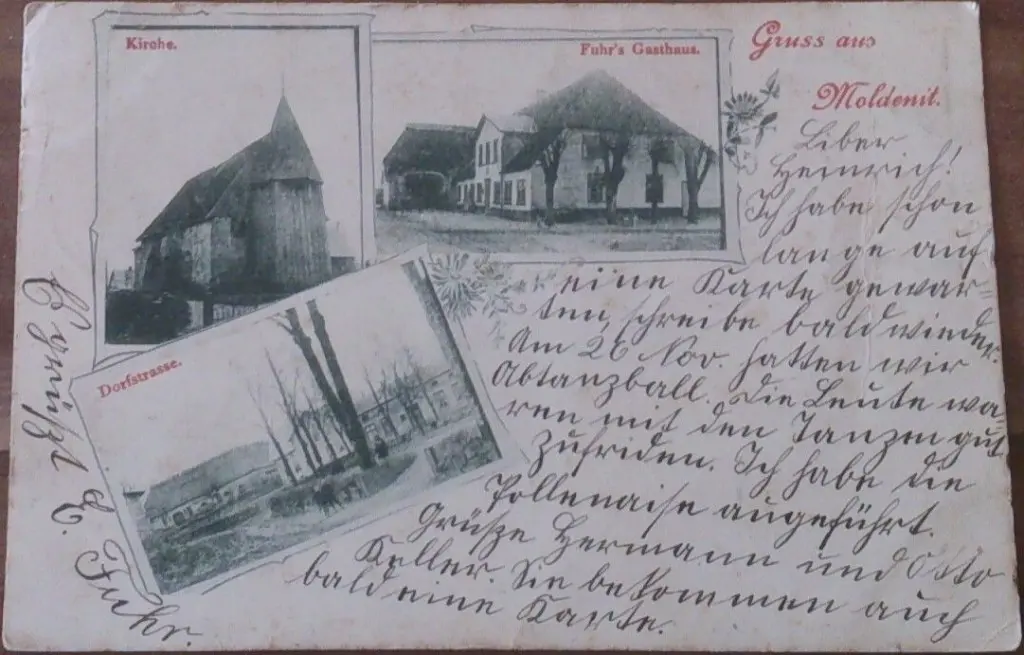 Kirche.
Fuhr's Gasthaus.
Gruss aus
Moldenit.
Dorfstrasse.
Liber
Heinrich!
Ich habe schon
lange auf
eine Karte gewar=
ten, schreibe bald wieder.
Am 26 Nov. hatten wir
Abtanzball. Die Leute wa=
ren mit den Tanzen gut
zufriden. Ich habe die
Pollenaise augeführt.
Grüße Hermann und Otto
Keller. Sie bekommen auch
bald eine Karte.
Fuhr.